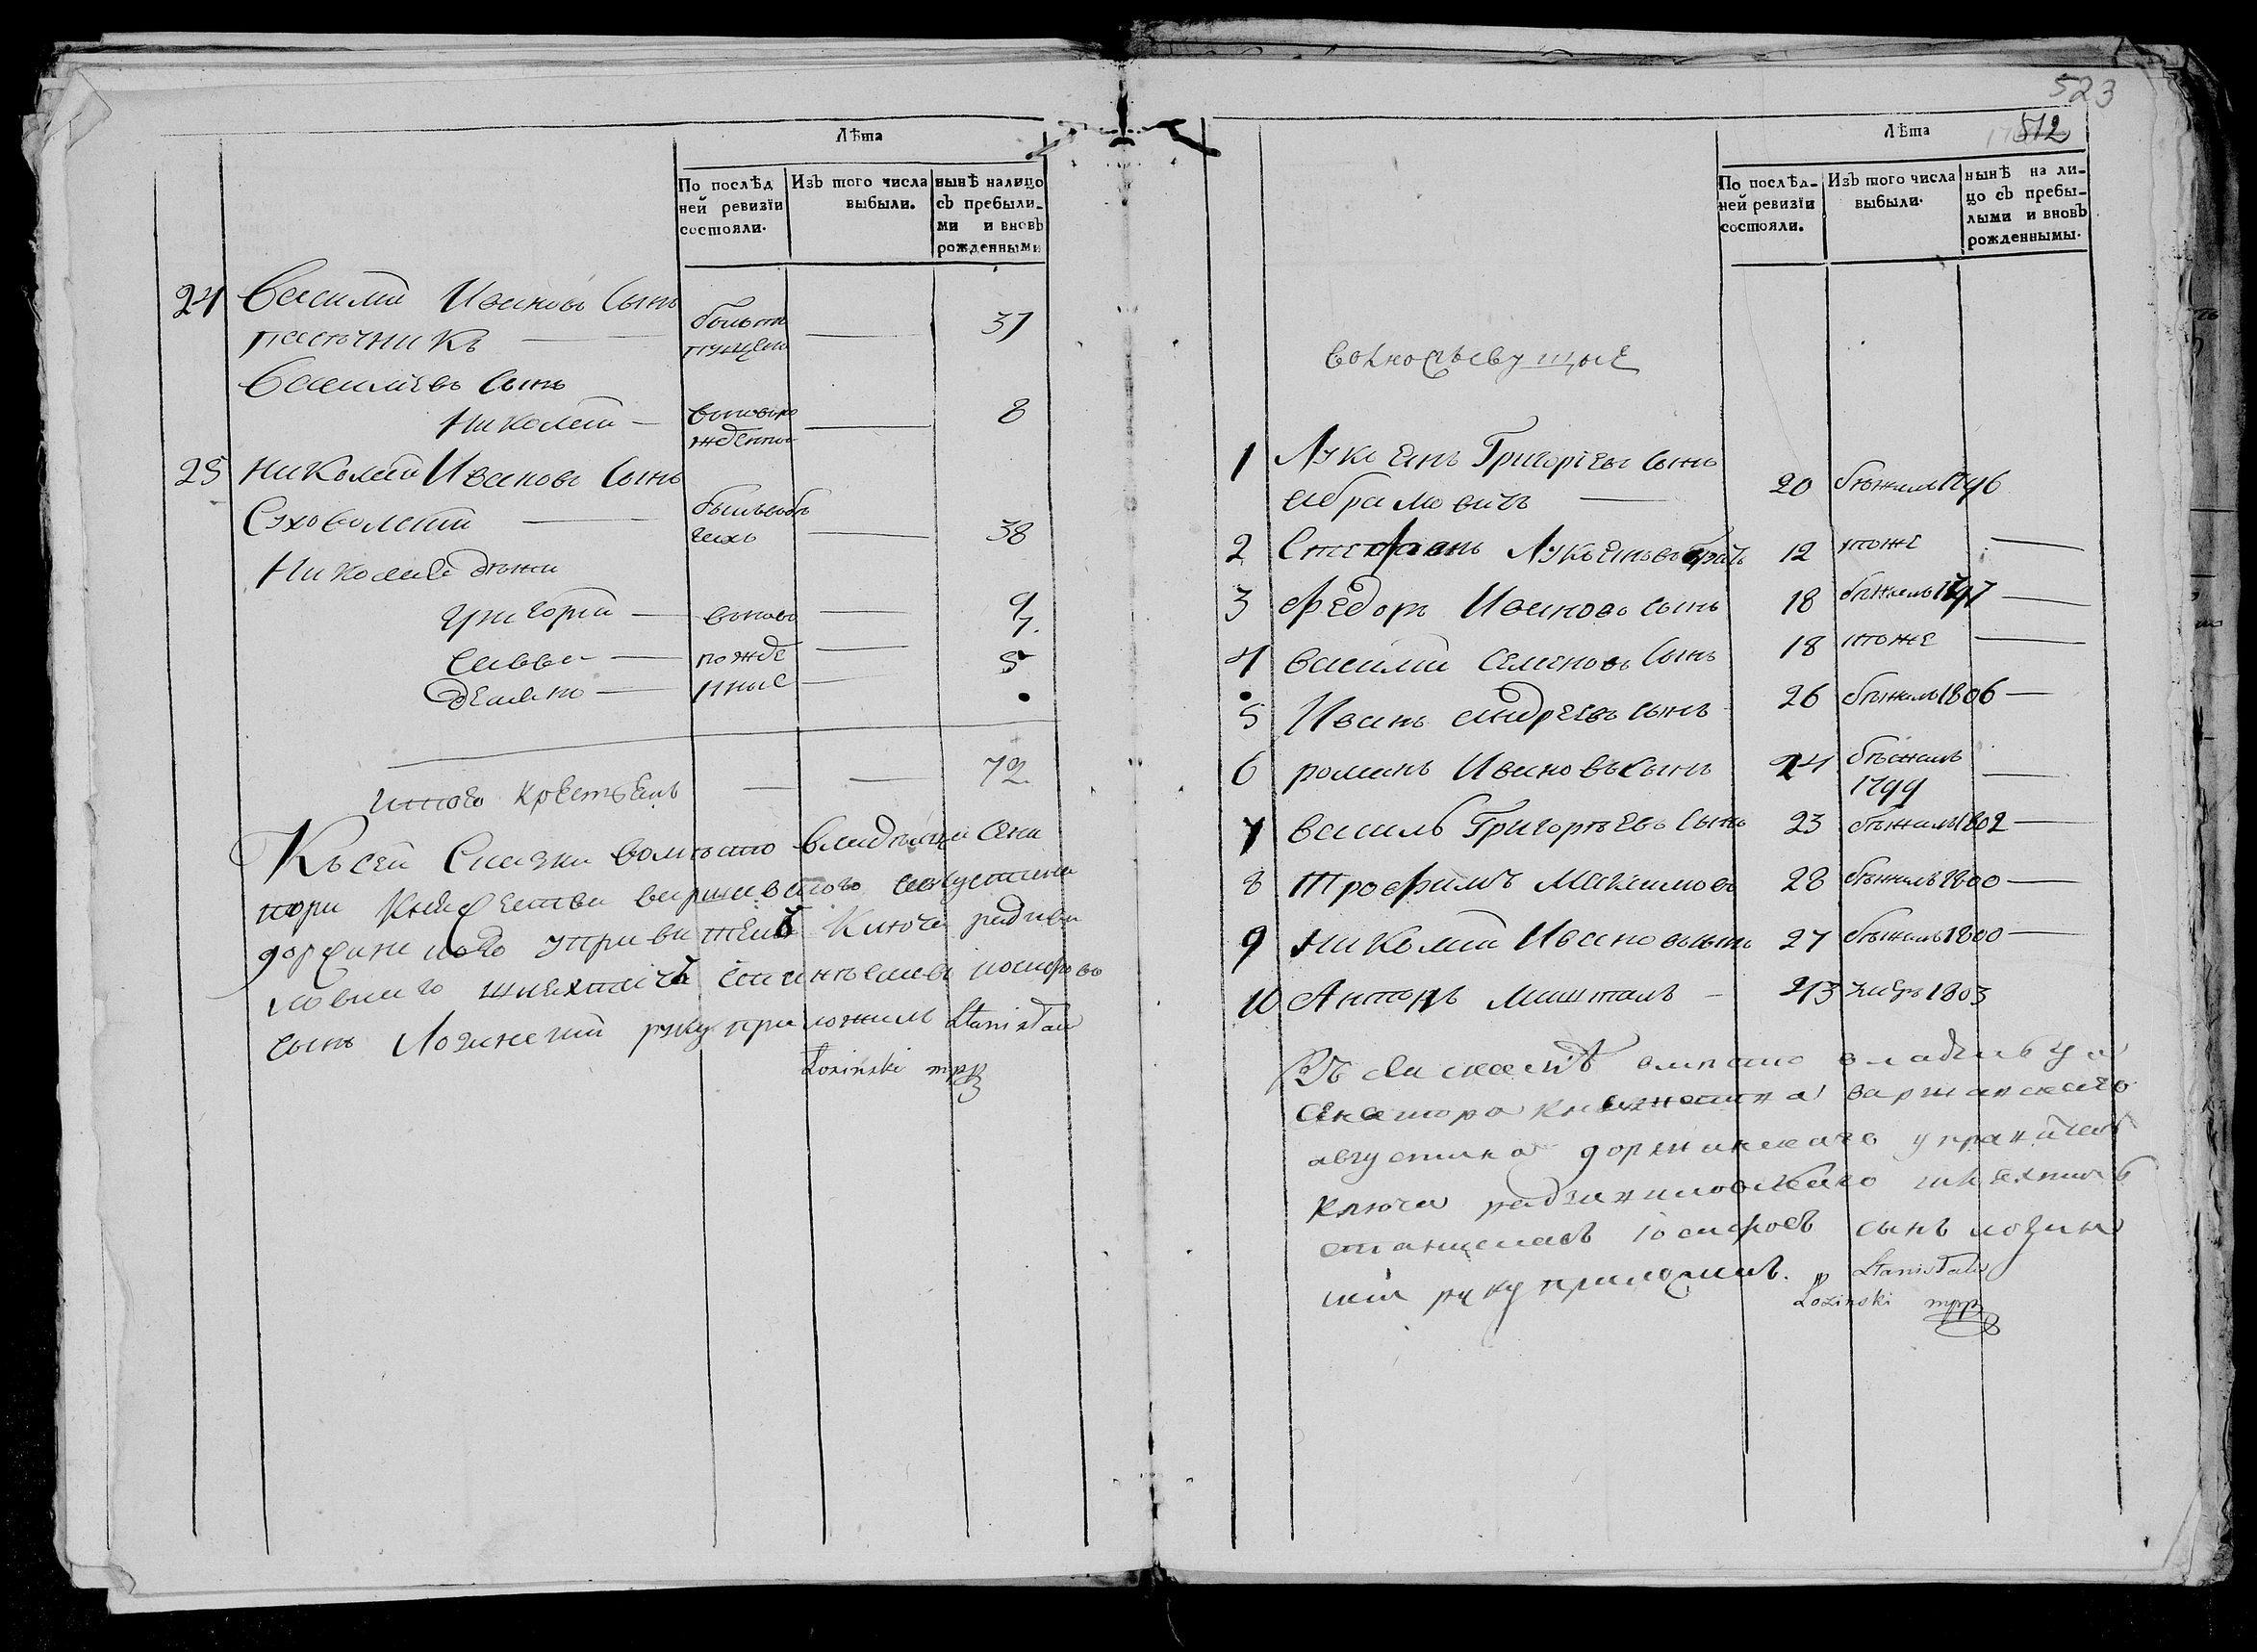 Лѣта
По послѣд
ней ревизїи
состояли.
Изъ того числа
выбыли.
нынѣ налицо
съ пребыли-
ми и вновь
рожденными
24 Василий Ивановъ Сынъ
песточникъ — — 37
Василиевъ сынъ
Николай — — 8
25 Николай Ивановъ Сынъ
— — 38
Николая дѣти
Григорий — вновь — 9
Савва — рожде — 7.
— нные — 5
итого крестьянъ — — 72.
Къ сей Сказки вомѣсто владѣльца Сена
тора Княжества варшавского августина
управитель Ключа радзи
шляхтичъ станиславъ иосифовъ
сынъ Лозинский руку приложилъ Stanisław
Łoziński mpp
523
512
Лѣта
По послѣд-
ней ревизїи
состояли.
Изъ того числа
выбыли.
нынѣ на ли-
цо съ пребы-
лыми и вновь
рожденнымы.
1 Лукьянъ Григорїевъ сынъ
абрамовичъ — 20 бѣжалъ 1796
2 Стефанъ Лукьяновъ братъ 12 тоже —
3 Федоръ Ивановъ сынъ 18 бѣжалъ 1797 —
4 василий Семеновъ Сынъ 18 тоже —
5 Иванъ андреевъ сынъ 26 бѣжалъ 1806 —
6 романъ Ивановъ сынъ 24 бѣжалъ
1799 —
7 василь Григорьевъ Сынъ 23 бѣжалъ 1802 —
8 Трофимъ Максимовъ 28 бѣжалъ 1800 —
9 Николай Ивановъ сынъ 27 бѣжалъ 1800 —
10 Антонъ — 1803
вмѣсто владѣльца
Сенатора княжества варшавскаго
августина управитель
ключа шляхтичъ
станиславъ иосифовъ сынъ лозинс
кий руку приложилъ. Stanisław
Łoziński mpp